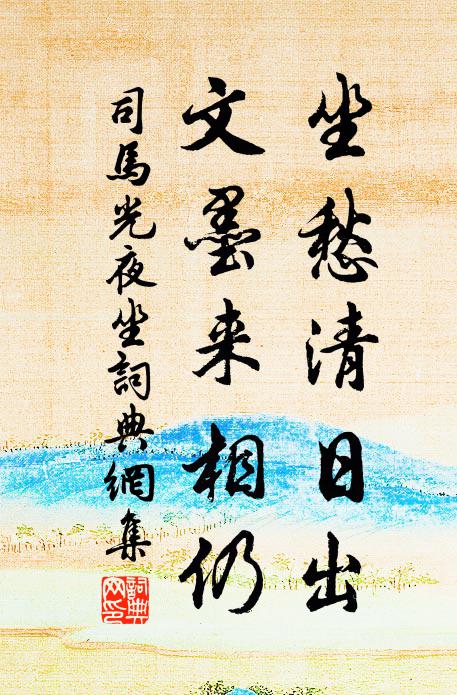 坐愁清日出
文墨来相仍
司馬光夜坐詞典網集
詞典網印